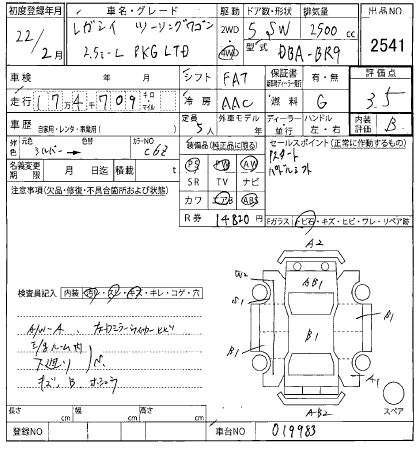 初度登録年月 車名・グレード 駆動 ドア数・形状 排気量 出品NO.
22/2月 レガシィ ツーリングワゴン 2WD 4WD 5 SW 2500 cc 2541
2.5i-L PKG LTD 型式 DBA-BR9
車検 年 月 シフト FAT 保証書 有・無 評価点
走行 17万4千709 キロ マイル 冷房 AAC 燃料 G 3.5
車歴 自家用・レンタ・事業用( ) 定員 5人 外車モデル 年 ディーラー 並行 ハンドル 左・右 内装評価 B
外色 元色 シルバー 色替 カラーNO C6Z 装備品(純正品に限る) セールスポイント(正常に作動するもの)
名義変更期限 月 日迄 積載 t PS PW AW
SR TV ナビ
カワ エアB ABS
注意事項(欠品・修復・不具合箇所および状態) R券 14820 円
Fガラス トビ石・キズ・ヒビ・ワレ・リペア跡
A2
AB1
W2
S1
B1
B1
B1
A1
AB2
スペア
検査員記入 内装 汚レ・スレ・キズ・キレ・コゲ・穴
A/W-A
下廻り
キズ、B
長さ cm 幅 cm 高さ cm
登録NO 車台NO 019983